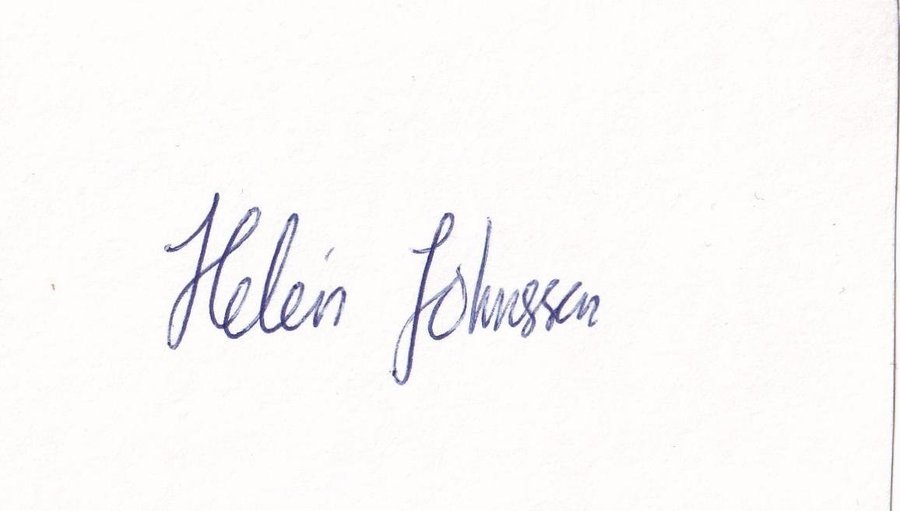 Helein Johnssen